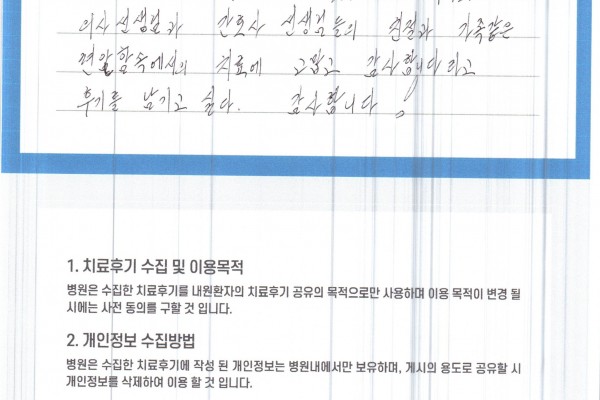 의사 선생님과 간호사 선생님들의 친절과 가족같은
편안함속에서의 치료에 고맙고 감사합니다라고
후기를 남기고 싶다. 감사합니다!
1. 치료후기 수집 및 이용목적
병원은 수집한 치료후기를 내원환자의 치료후기 공유의 목적으로만 사용하며 이용 목적이 변경 될
시에는 사전 동의를 구할 것 입니다.
2. 개인정보 수집방법
병원은 수집한 치료후기에 작성 된 개인정보는 병원내에서만 보유하며, 게시의 용도로 공유할 시
개인정보를 삭제하여 이용 할 것 입니다.